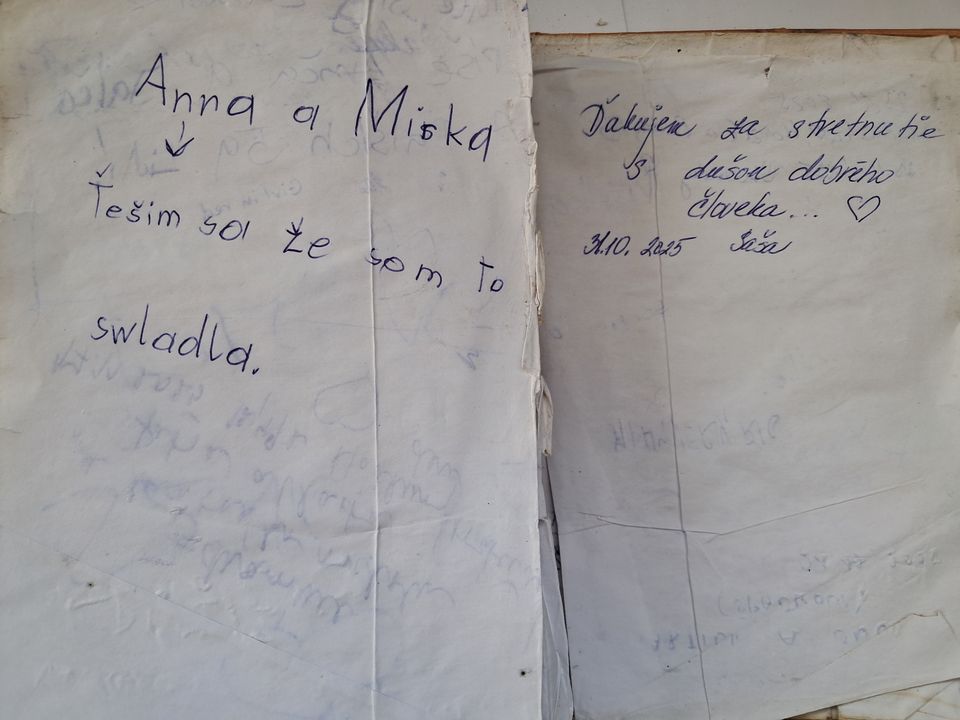 Anna a Miska
Ťešim sa že som to
swladla.
Ďakujem za stretnutie
s dušou dobrého
človeka... ♡
31.10. 2025 Saša